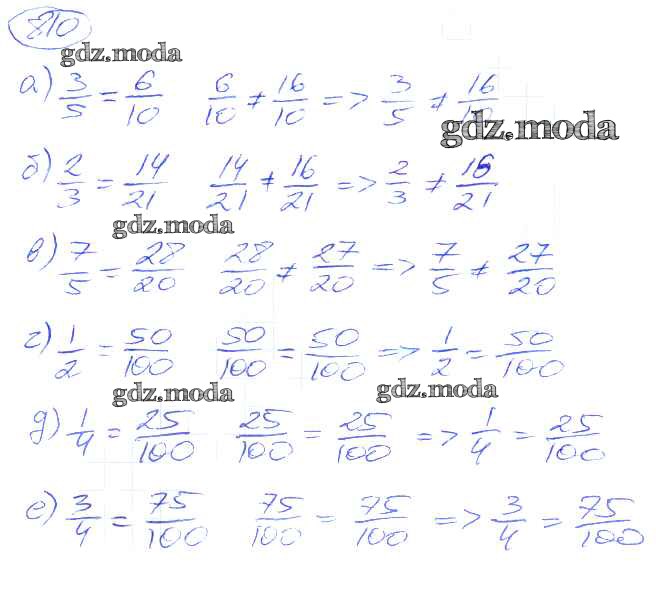 810
gdz.moda
а) 3/5 = 6/10 6/10 ≠ 16/10 => 3/5 ≠ 16/10
gdz.moda
б) 2/3 = 14/21 14/21 ≠ 16/21 => 2/3 ≠ 16/21
gdz.moda
в) 7/5 = 28/20 28/20 ≠ 27/20 => 7/5 ≠ 27/20
г) 1/2 = 50/100 50/100 = 50/100 => 1/2 = 50/100
gdz.moda gdz.moda
д) 1/4 = 25/100 25/100 = 25/100 => 1/4 = 25/100
е) 3/4 = 75/100 75/100 = 75/100 => 3/4 = 75/100